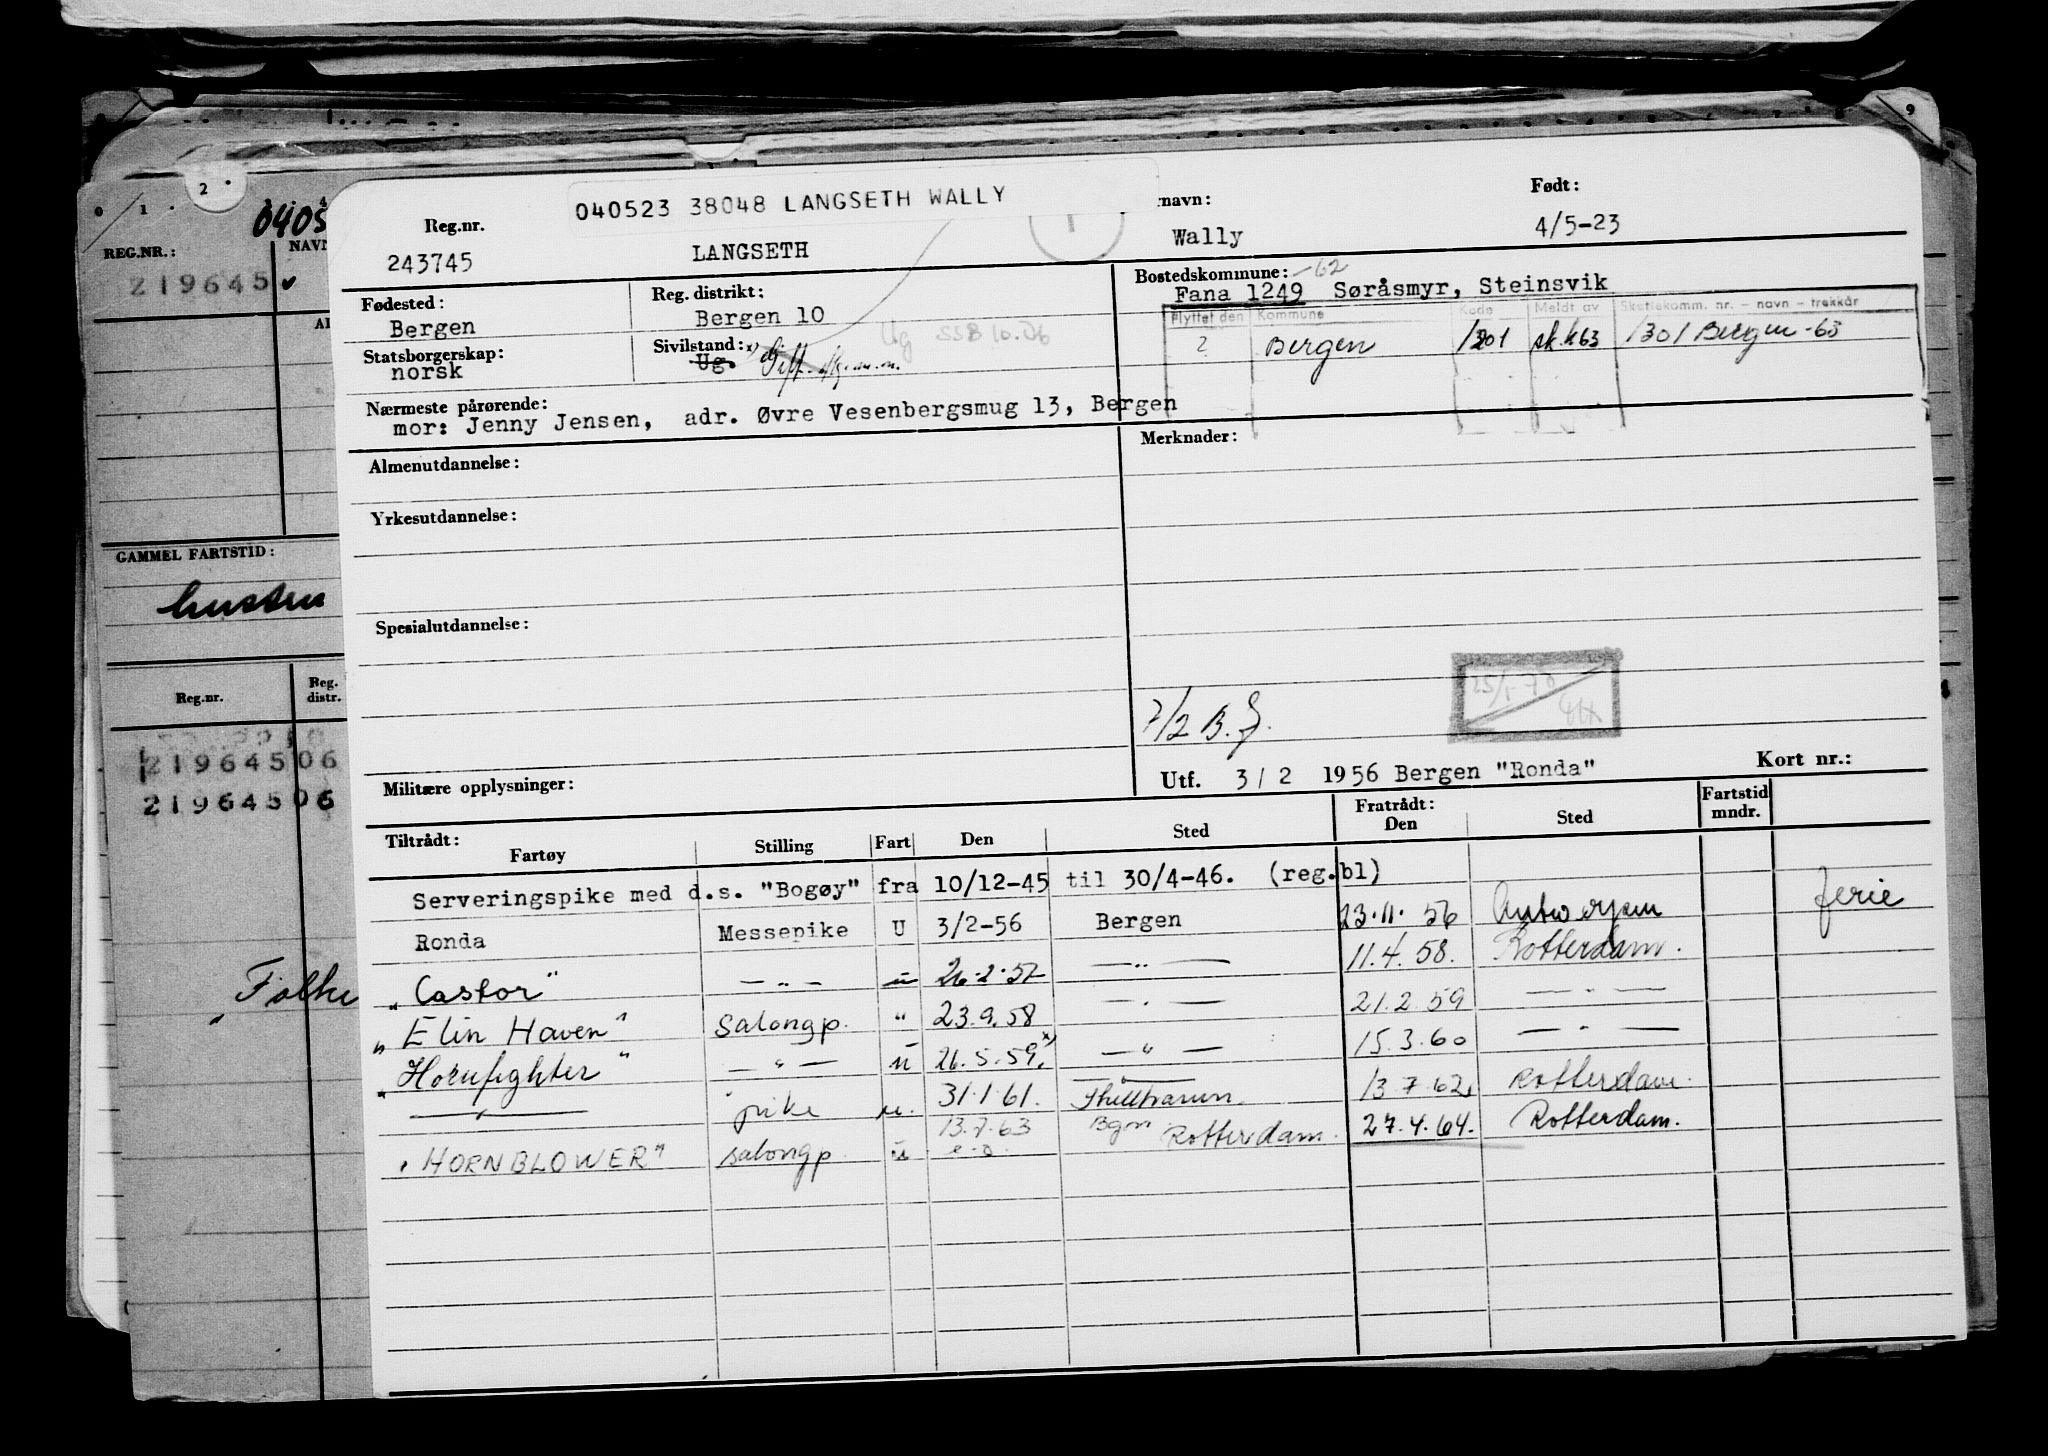 9
2
0 1 4
0405
REG.NR.: NAVN
219645
GAMMEL FARTSTID:
Reg.nr. Reg. distr.
219645 06
219645 06
040523 38048 LANGSETH WALLY
Reg.nr. navn: Født:
243745 LANGSETH Wally 4/5-23
Fødested: Reg. distrikt: Bostedskommune: -62
Bergen Bergen 10 Fana 1249 Søråsmyr, Steinsvik
Flyttet den Kommune Kode Meldt av Skattekomm. nr. - navn - trekkår
Statsborgerskap: Sivilstand: x) Ug SSB 10.06
norsk Ug. Gift 2 Bergen 1301 sk.k63 1301 Bergen -63
Nærmeste pårørende:
mor: Jenny Jensen, adr. Øvre Vesenbergsmug 13, Bergen
Almenutdannelse: Merknader:
Yrkesutdannelse:
Spesialutdannelse:
25/1 70
7/2 B.J.
Militære opplysninger: Utf. 3/2 1956 Bergen "Ronda" Kort nr.:
Tiltrådt: Fratrådt:
Fartøy Stilling Fart Den Sted Den Sted Fartstid mndr.
Serveringspike med d.s. "Bogøy" fra 10/12-45 til 30/4-46. (reg.bl)
Ronda Messepike U 3/2-56 Bergen 23.11.56 Antwerpen ferie
"Castor" — " — u 26.2.57 — " — 11.4.58. Rotterdam.
"Elin Haven" Salongp. " 23.9.58 — " — 21.2.59 — " —
"Hornfighter" — " — u 26.5.59. x) — " — 15.3.60 — " —
— " — pike u. 31.1.61. 13.7.62. Rotterdam.
"HORNBLOWER" salongp. u 13.7.63 Bgn Rotterdam. 27.4.64. Rotterdam.